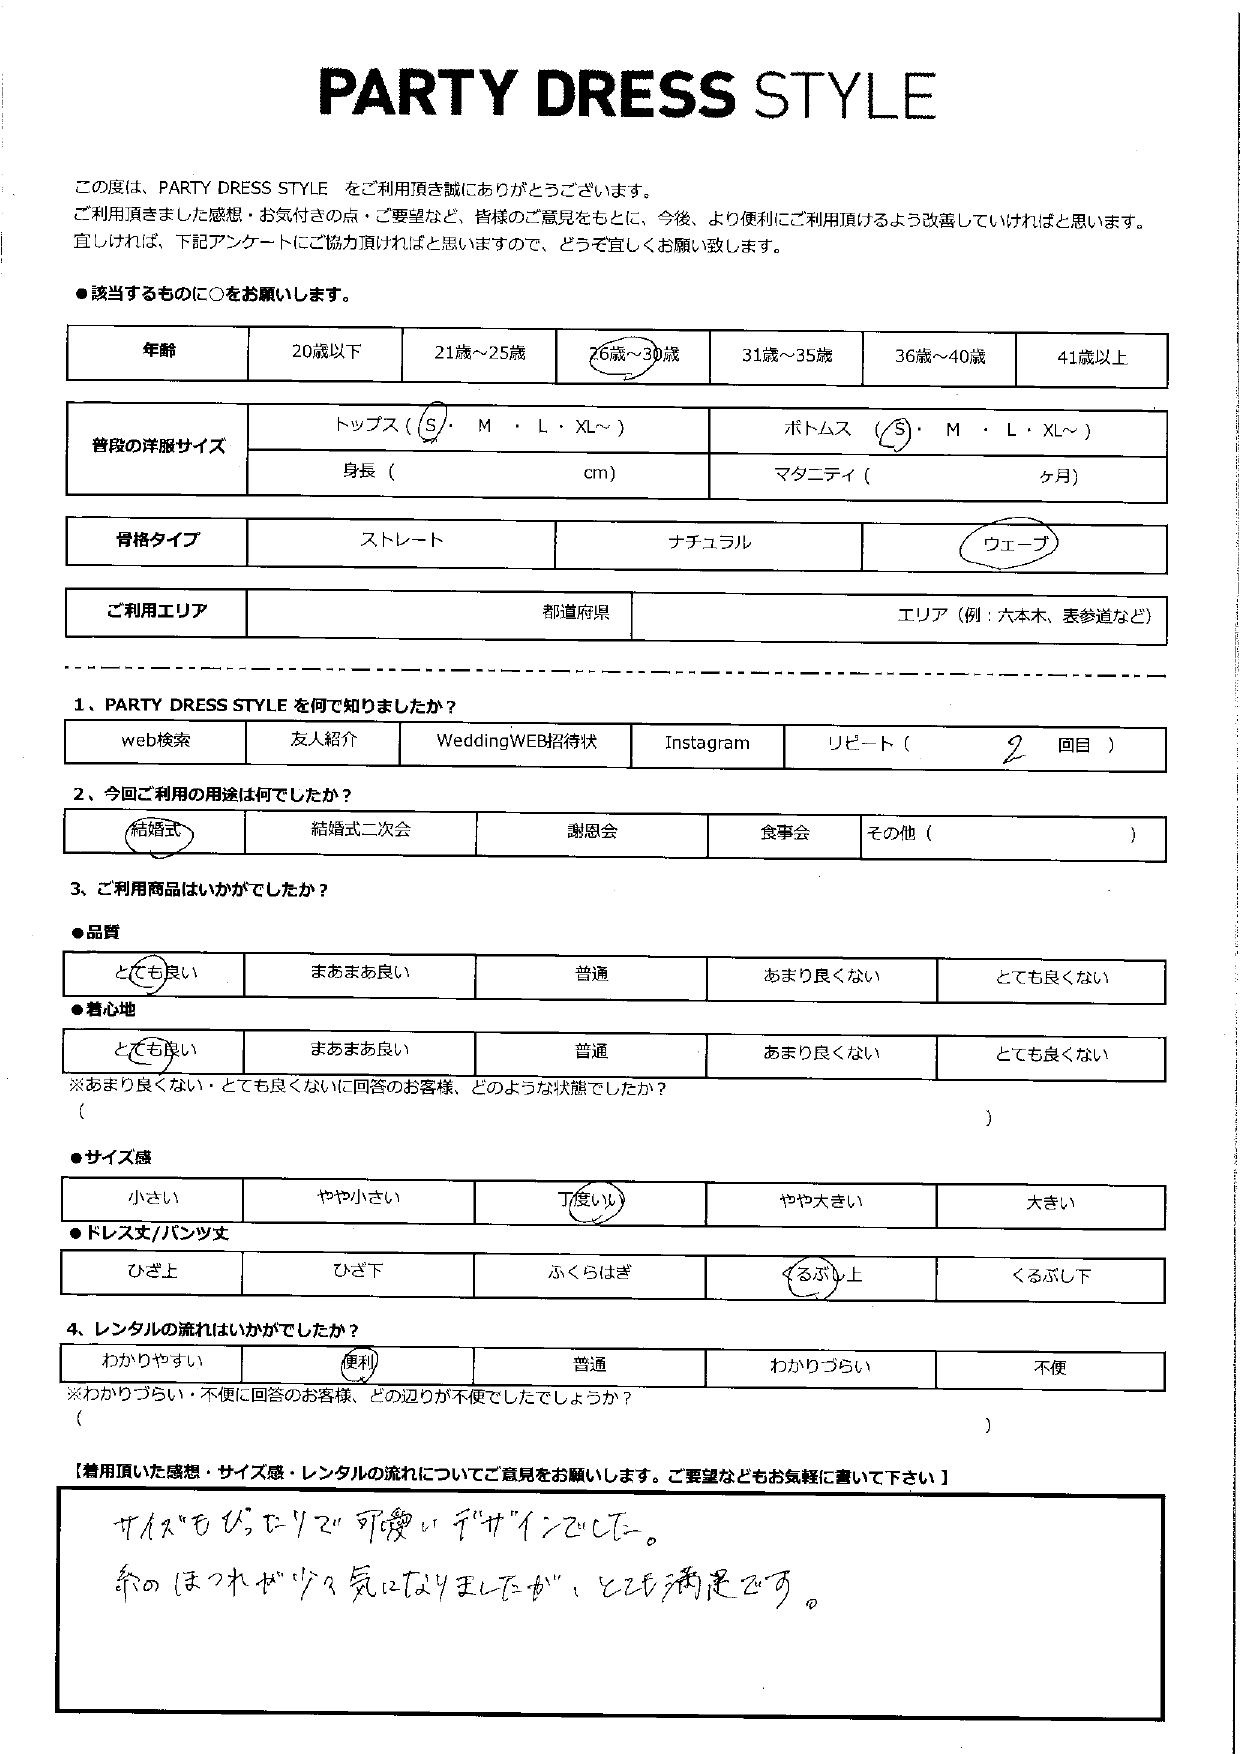 PARTY DRESS STYLE
この度は、PARTY DRESS STYLE をご利用頂き誠にありがとうございます。
ご利用頂きました感想・お気付きの点・ご要望など、皆様のご意見をもとに、今後、より便利にご利用頂けるよう改善していければと思います。
宜しければ、下記アンケートにご協力頂ければと思いますので、どうぞ宜しくお願い致します。
●該当するものに○をお願いします。
年齢 20歳以下 21歳～25歳 26歳～30歳 31歳～35歳 36歳～40歳 41歳以上
普段の洋服サイズ
トップス ( S ・ M ・ L ・ XL～ ) ボトムス ( S ・ M ・ L ・ XL～ )
身長 ( cm) マタニティ ( ヶ月)
骨格タイプ ストレート ナチュラル ウェーブ
ご利用エリア 都道府県 エリア（例：六本木、表参道など）
1、PARTY DRESS STYLE を何で知りましたか？
web検索 友人紹介 WeddingWEB招待状 Instagram リピート ( 2 回目 )
2、今回ご利用の用途は何でしたか？
結婚式 結婚式二次会 謝恩会 食事会 その他 ( )
3、ご利用商品はいかがでしたか？
●品質
とても良い まあまあ良い 普通 あまり良くない とても良くない
●着心地
とても良い まあまあ良い 普通 あまり良くない とても良くない
※あまり良くない・とても良くないに回答のお客様、どのような状態でしたか？
( )
●サイズ感
小さい やや小さい 丁度いい やや大きい 大きい
●ドレス丈/パンツ丈
ひざ上 ひざ下 ふくらはぎ くるぶし上 くるぶし下
4、レンタルの流れはいかがでしたか？
わかりやすい 便利 普通 わかりづらい 不便
※わかりづらい・不便に回答のお客様、どの辺りが不便でしたでしょうか？
( )
【着用頂いた感想・サイズ感・レンタルの流れについてご意見をお願いします。ご要望などもお気軽に書いて下さい】
サイズもぴったりで可愛いデザインでした。
糸のほつれが少々気になりましたが、とても満足です。